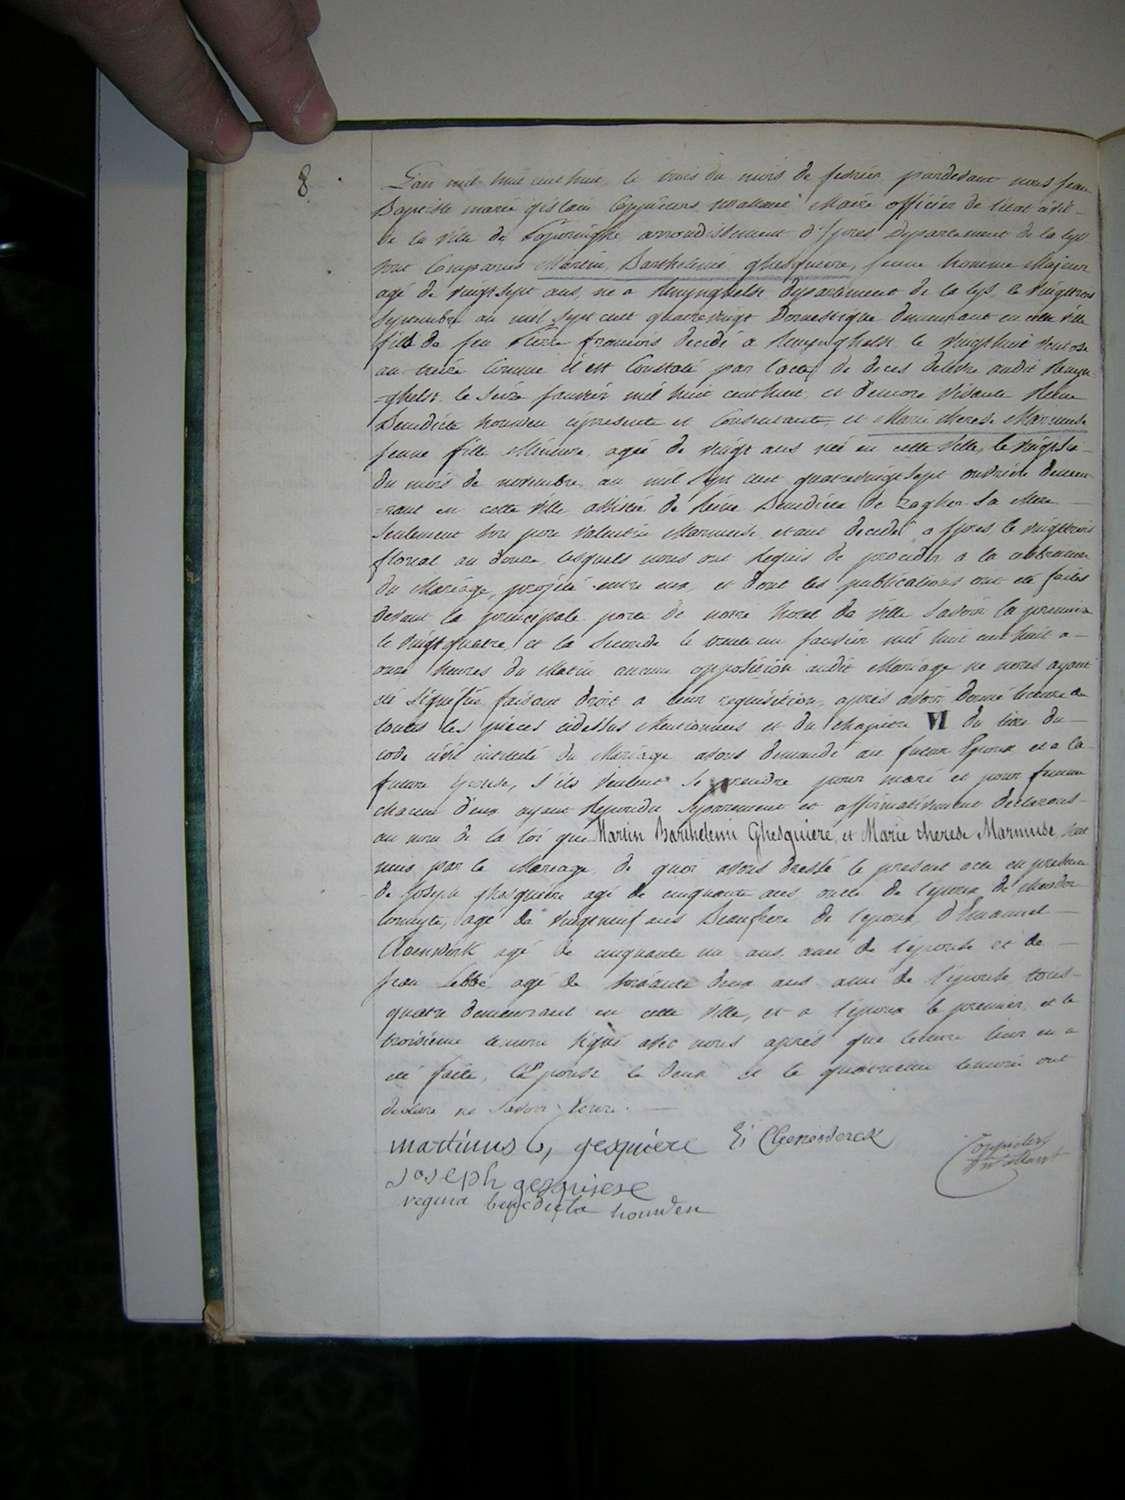 8
L'an mil huit cent huit, le trois du mois de fevrier pardevant nous Jean
Baptiste marie gislain Maire officier de l'etat civil
de la ville de Poperinghe arrondissement d'Ypres Departement de la Lys
sont Comparus Martin Barthelemi ghesquiere, jeune homme Majeur
agé de vingt sept ans, né a Reninghelst departement de la Lys, le vingttrois
Septembre an mil sept cent quatre vingt Domestique demeurant en cette ville
fils de feu Pierre francois decedé a Reninghelst le vingthuit ventose
an treize comme il est Constaté par l'acte de deces delivré audit Renyn-
-ghelst le seize janvier mil huit cent huit, et d'encore vivante Reine
Benedicte houwen cipresente et Consentante, et Marie therese Marmuse
jeune fille Mineure, agée de vingt ans née en cette ville, le vingt
du mois de novembre an mil sept cent quatre vingt sept ouvriere demeu-
-rant en cette ville assistée de Reine Benedicte de Zagher sa Mere
seulement son pere Valentin Marmuse etant decedé a Ypres le vingttrois
floreal an douze lesquels nous ont Requis de proceder a la celebration
du Mariage, projeté entre eux, et dont les publications ont eté faites
devant la principale porte de notre hotel de ville savoir la premiere
le vingt quatre et la seconde le trente un janvier mil huit cent huit a
onze heures du Matin aucune opposition audit Mariage ne nous ayant
eté signifiée faisant droit a leur requisition, apres avoir donné lecture de
toutes les pieces cidessus Mentionnées et du chapitre VI du titre du
code civil intitulé du Mariage avons demandé au futur Epoux et a la
future Epouse, s'ils veulent se prendre pour mari et pour femme
chacun d'eux ayant Repondu Separement et affirmativement declarons
au nom de la loi que Martin Barthelemi Ghesquiere, et Marie therese Marmuse, sont
unis par le Mariage, de quoi avons dressé le present acte en presence
de Joseph ghesquiere agé de cinquante ans oncle de l'epoux de
agé de vingtneuf ans Beaufrere de l'epoux d'Emanuel
agé de cinquante un ans ami de l'epouse et de
jean Lebbe agé de soixante deux ans ami de l'epouse, tous
quatre demeurant en cette ville, et a l'epoux le premier et le
troisieme temoin signé avec nous apres que lecture leur en a
eté faite, l'Epouse le deux et le quatrieme temoin ont
declaré ne savoir Ecrire.
martinus G, gesquiere
Joseph gesquiere
regina benedicta houwen